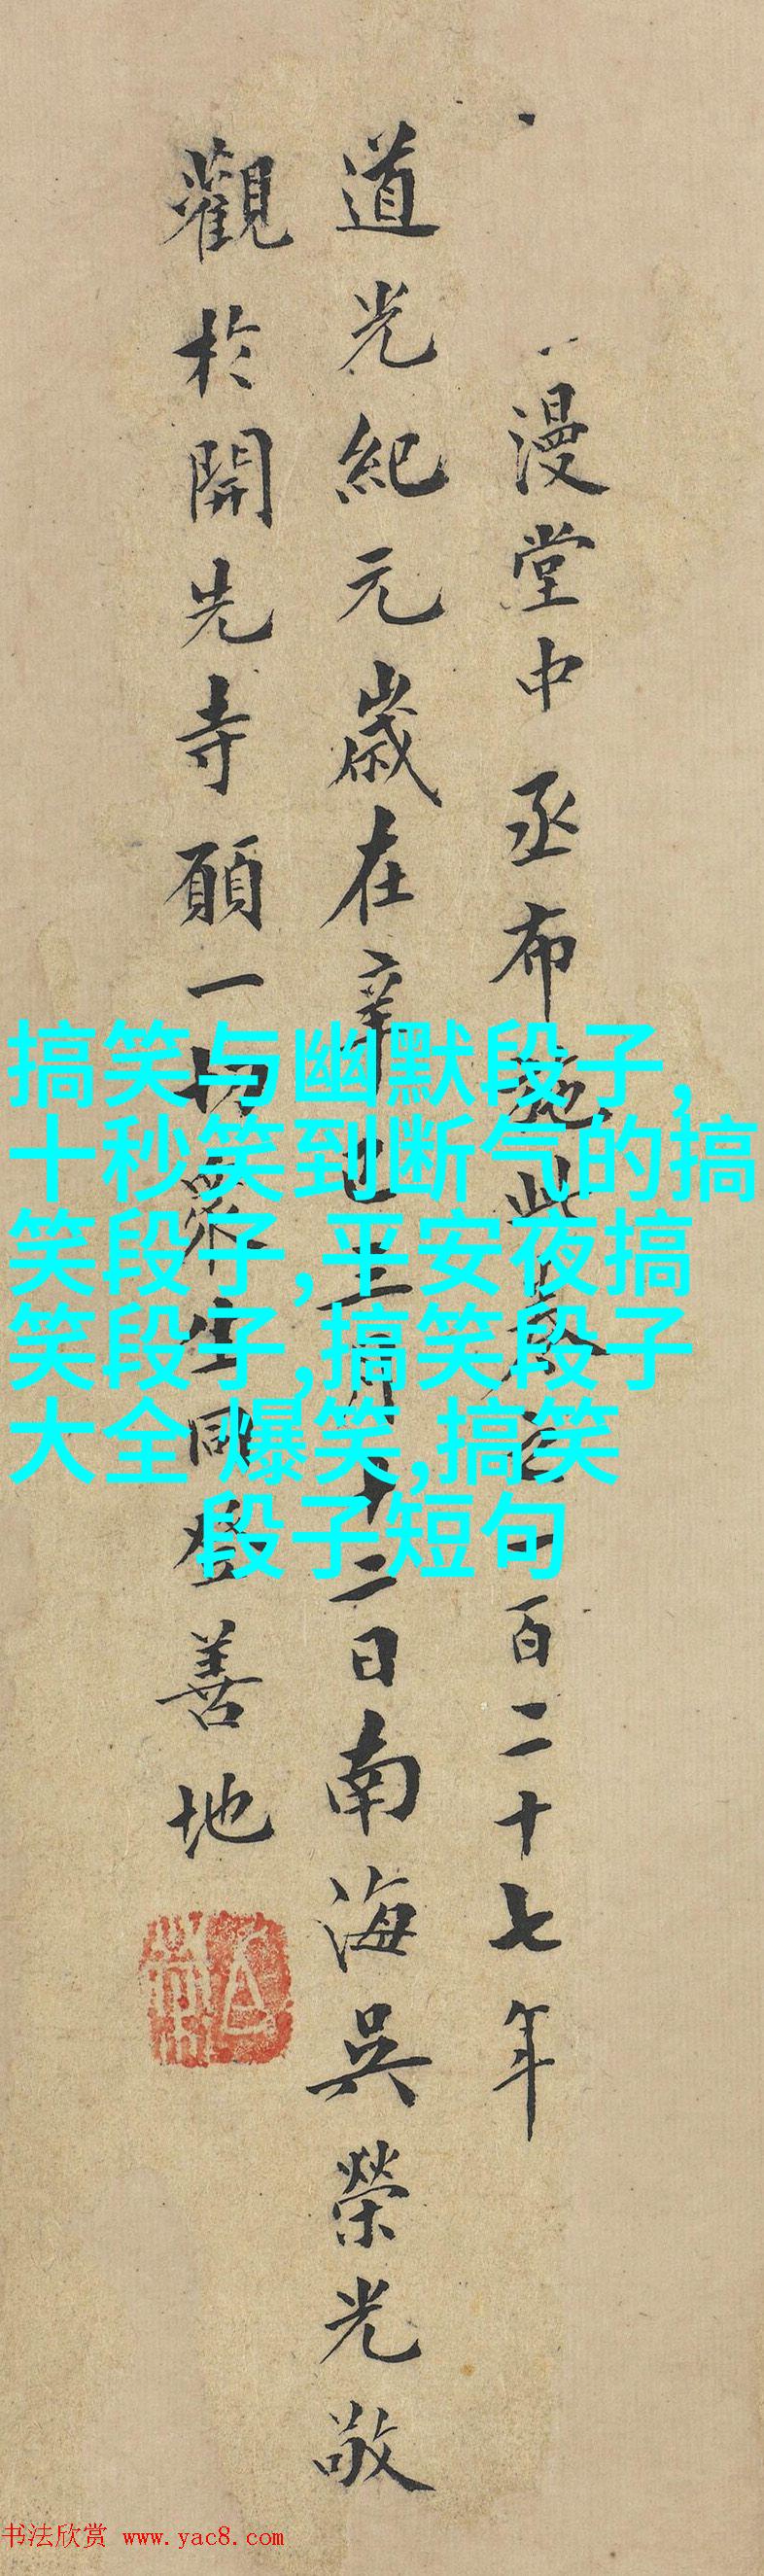 漫堂中丞布施此卷後一百二十七年
道光紀元歲在辛巳三月十二日南海吳榮光敬
觀於開先寺願一切眾生同登善地
搞笑与幽默段子,
十秒笑到断气的搞
笑段子,平安夜搞
笑段子,搞笑段子
大全 爆笑,搞笑
段子短句
书法欣赏 www.yac8.com